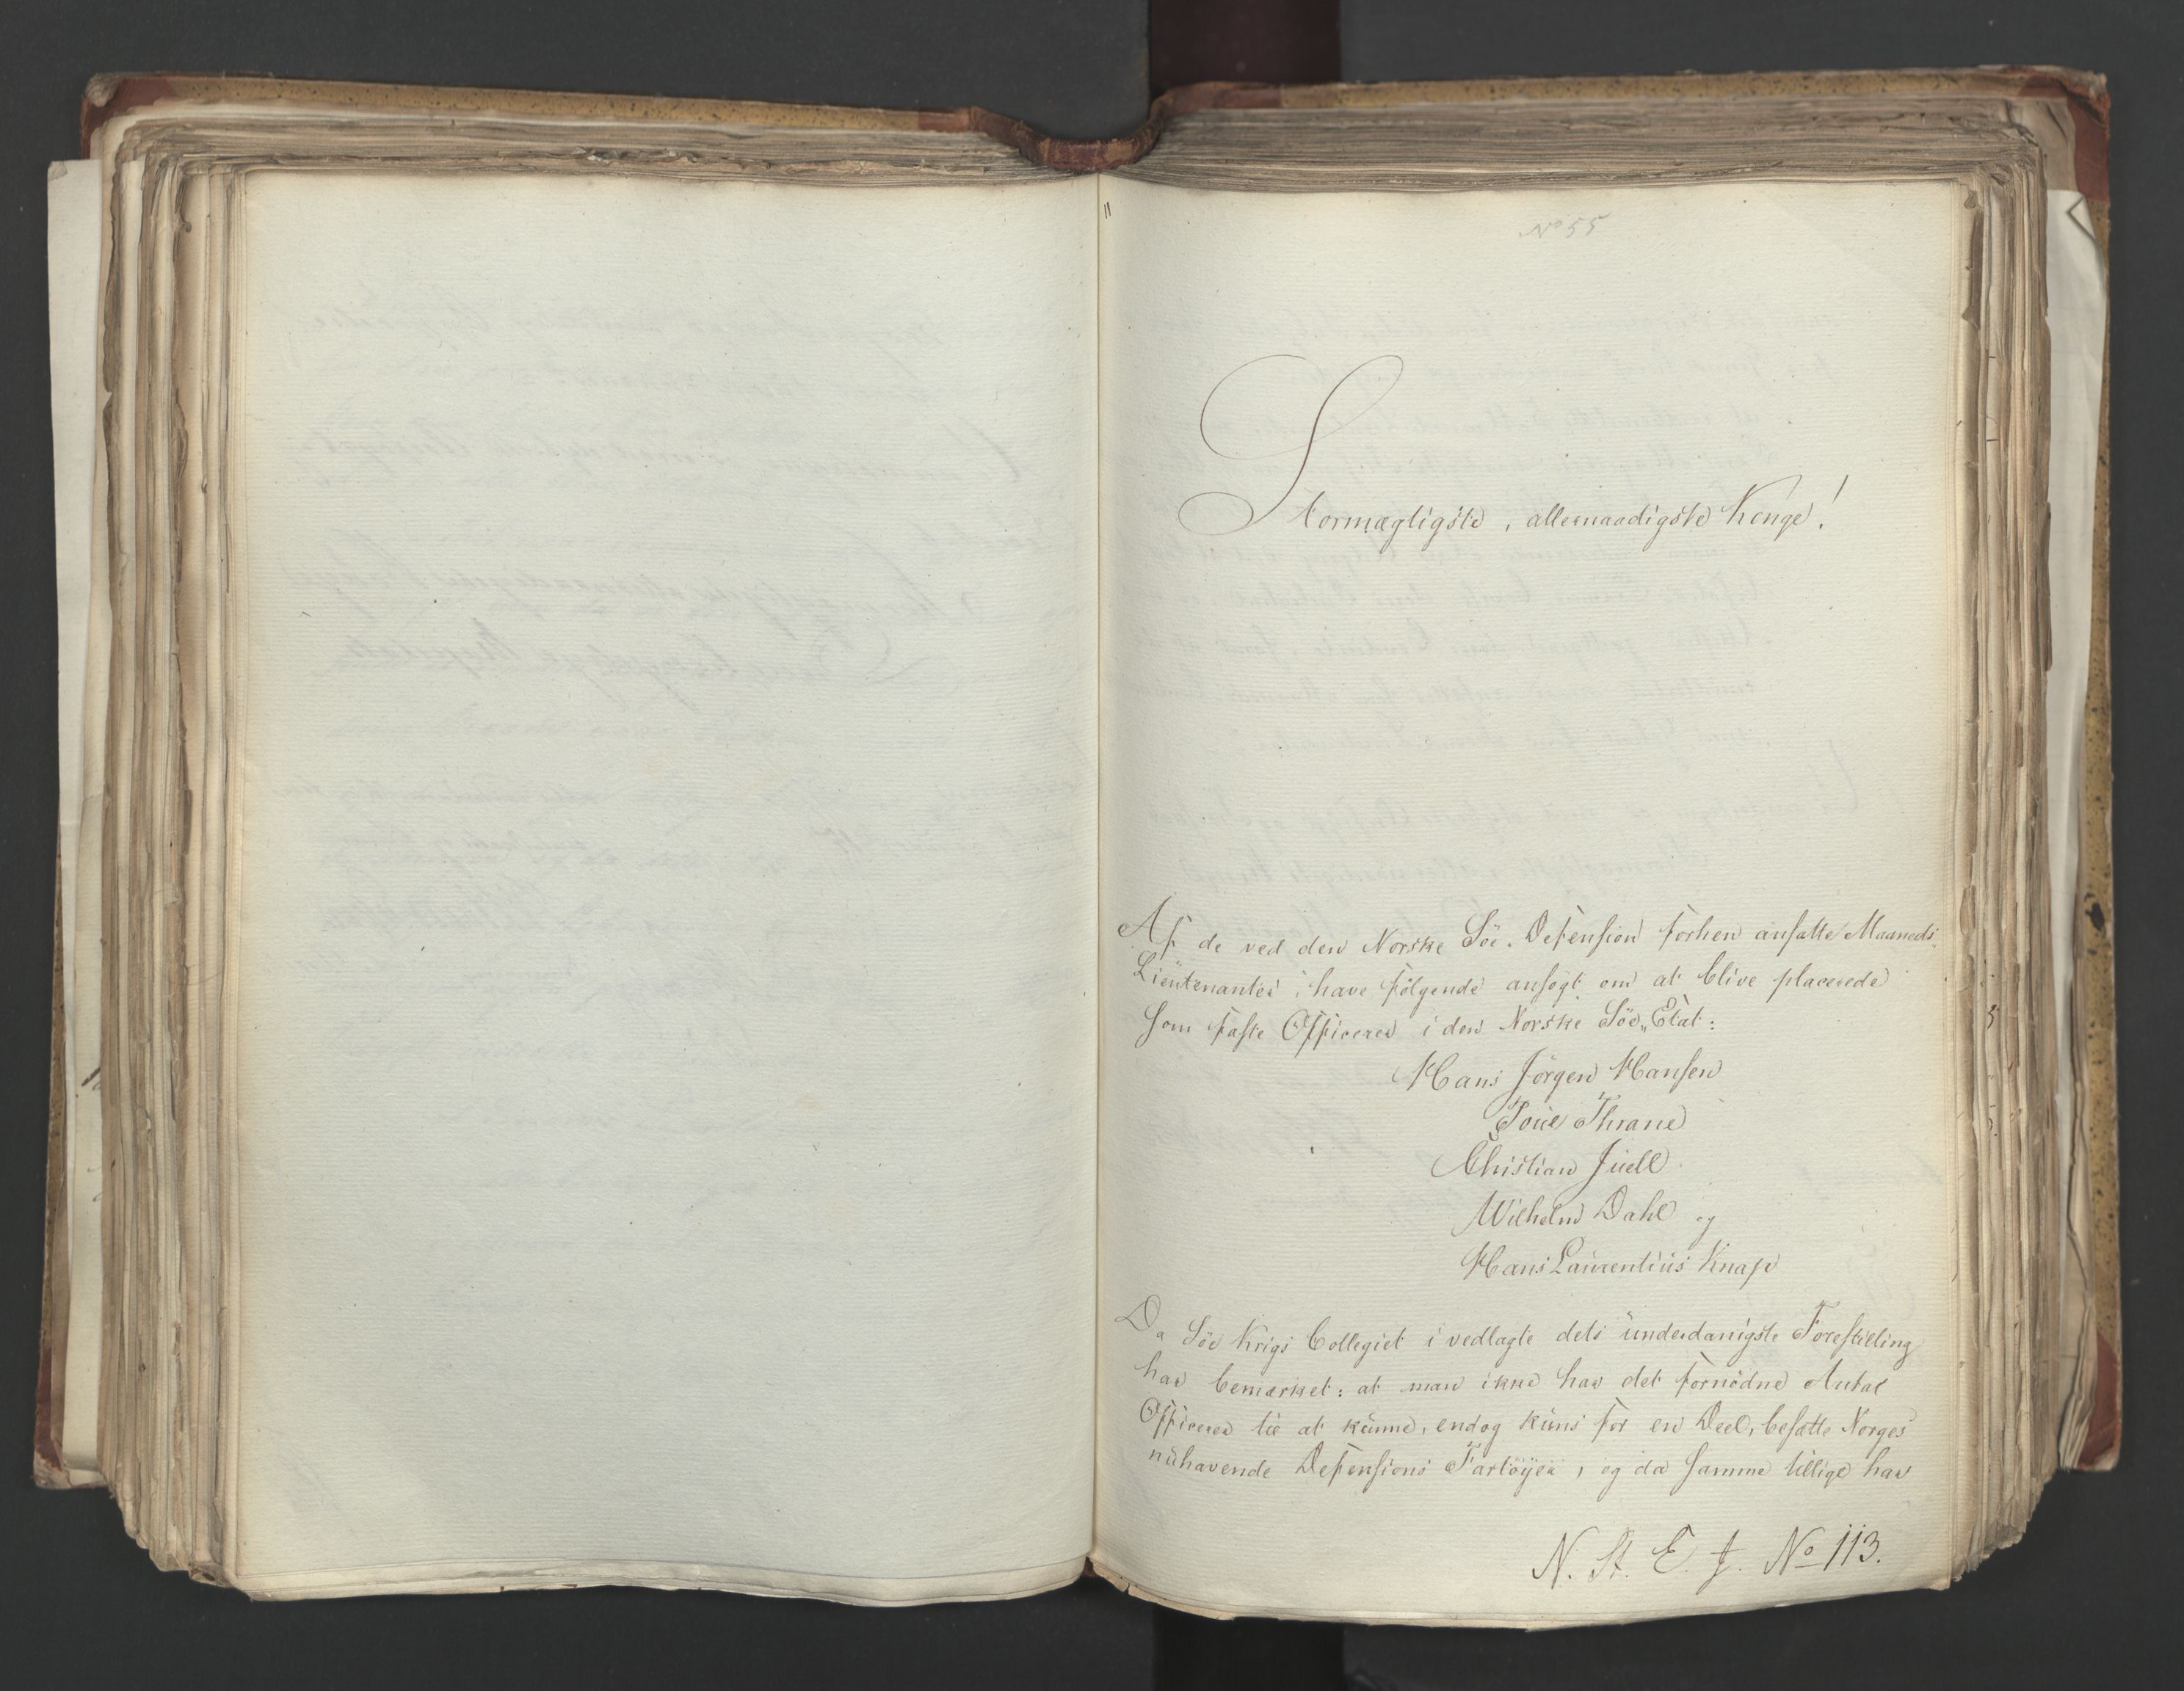 No 55
Stormægtigste, allernaadigste Konge!
Af de ved den Norske Söe-Defension forhen ansatte Maaneds-
Lieutenanter, have følgende ansøgt om at blive placerede
som faste Officerer i den Norske Söe-Etat:
Hans Jörgen Hansen
Poüel Thrane
Christian Jüell
Wilhelm Dahl og
Hans Laurentius Knap
Da Söe Krigs Collegiet i vedlagte dets underdanigste Forestilling
har bemærket: at man ikke har det fornødne Antal
Officerer til at kunne, endog kuns for en Deel, besætte Norges
nuhavende Defensions Fartöyer, og da samme tillige har
N. St. E. J. No 113.